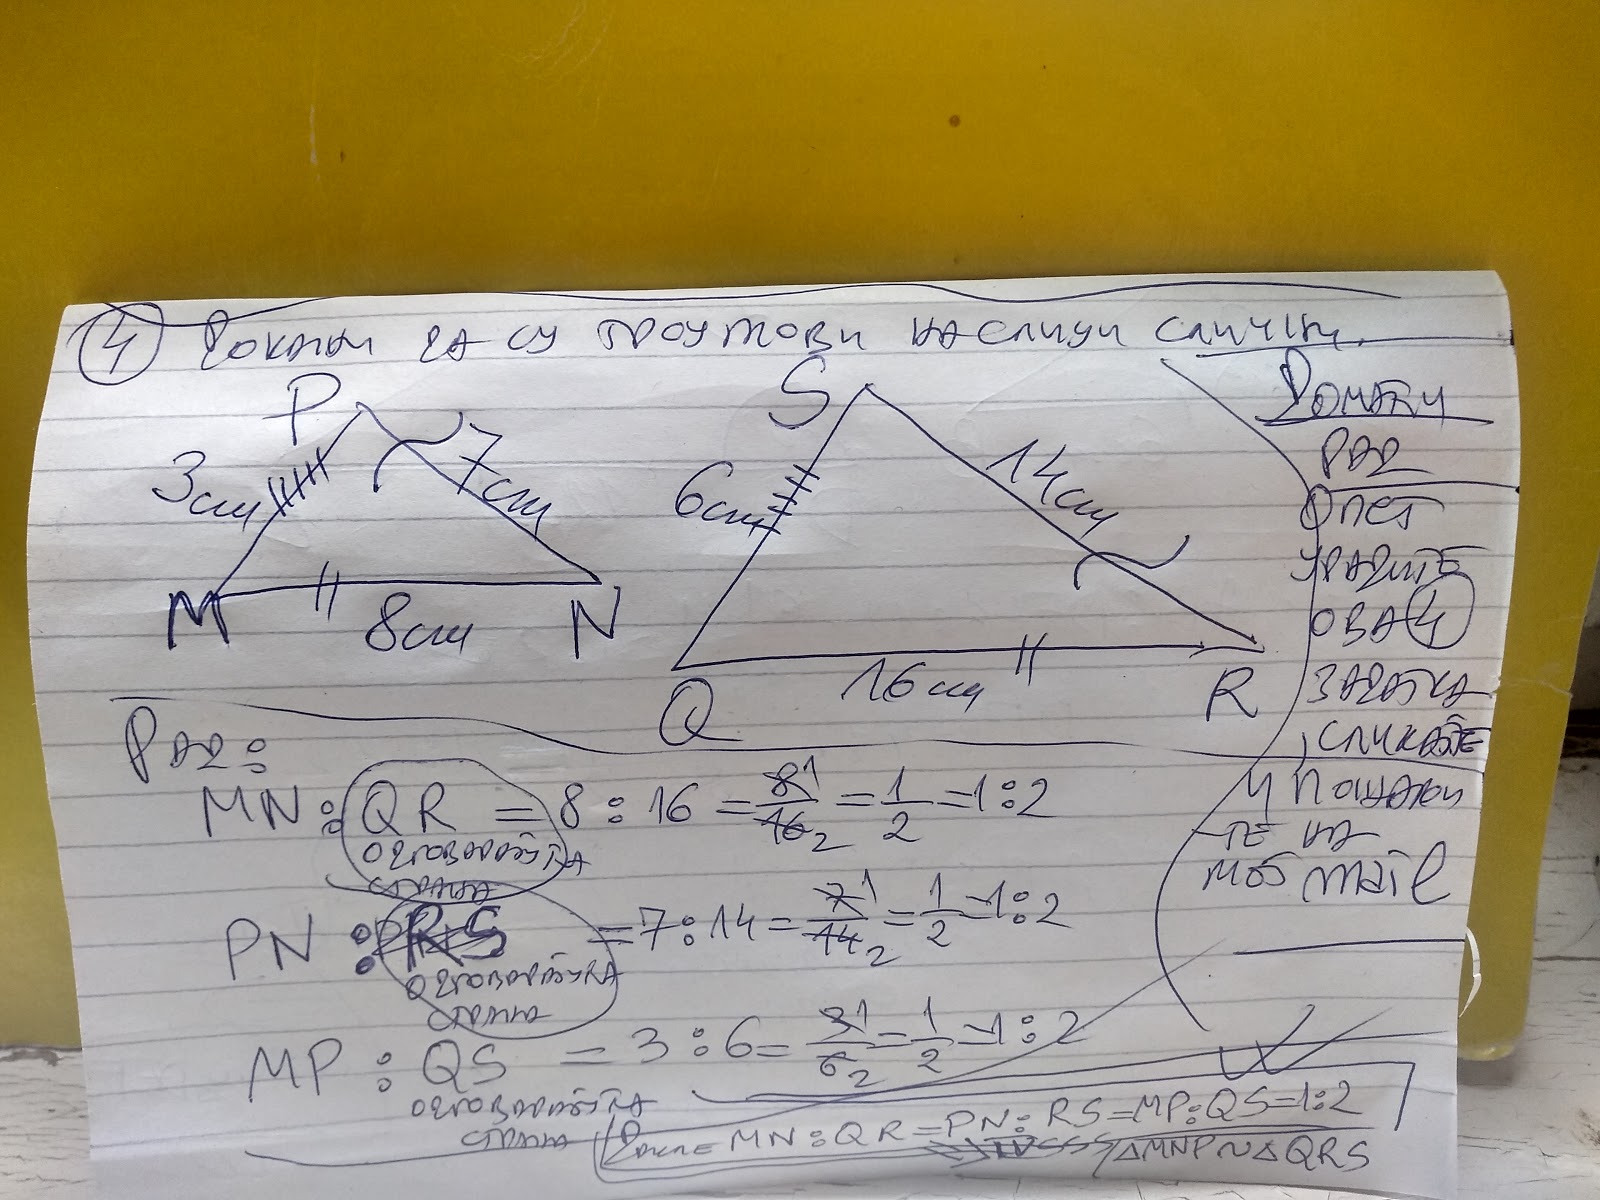 ④ Докажи да су троуглови на слици слични.
P
3cm
7cm
M
8cm
N
S
6cm
14cm
Q
16cm
R
Домаћи
рад
Опет
урадите
ова 4
задатка
, сликајте
и пошаљи
те на
мој mail
Рад:
MN : QR = 8 : 16 = 8/16 = 1/2 = 1:2
одговарајућа
страна
PN : RS = 7 : 14 = 7/14 = 1/2 = 1:2
одговарајућа
страна
MP : QS = 3 : 6 = 3/6 = 1/2 = 1:2
одговарајућа
страна
Дакле MN:QR = PN:RS = MP:QS = 1:2
△MNP ~ △QRS